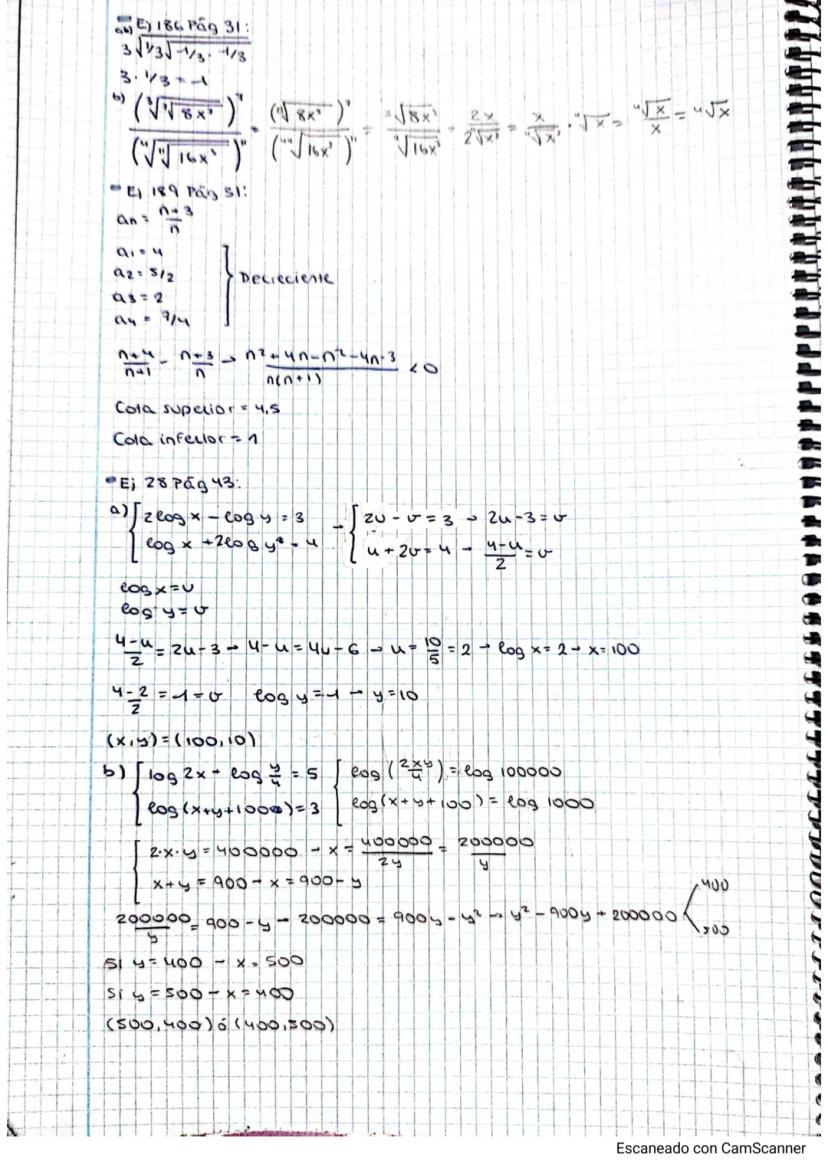 Ej 186 Pág 31:
3√(1/3√(-1/3 · -1/3
3 · 1/3 = 1
b) (³√(√(8x³)))⁷ / (⁴√(ⁿ√(16x³)))ⁿ = (√(8x³))⁷ / (√(16x³))ⁿ = ³√(8x³) / ⁴√(16x³) = 2x / 2⁴√(x³) = x / ⁴√(x³) · ⁴√x = x⁴√x / x = ⁴√x
Ej 189 Pág 31:
an = n+3/n
a1 = 4
a2 = 5/2
Decreciente
a3 = 2
a4 = 7/4
n+4/n+1 - n+3/n → n²+4n-n²-4n-3 / n(n+1) < 0
Cota superior = 4,5
Cota inferior = 1
Ej 28 Pág 43:
a) { 2log x - log y = 3 → { 2u - v = 3 → 2u-3 = v
log x + 2log y = 4 u + 2v = 4 → 4-u/2 = v
log x = u
log y = v
4-u/2 = 2u-3 → 4-u = 4u-6 → u = 10/5 = 2 → log x = 2 → x = 100
4-2/2 = 1 = v log y = 1 → y = 10
(x,y) = (100,10)
b) { log 2x + log y/4 = 5 { log (2xy/4) = log 100000
log(x+y+100) = 3 log(x+y+100) = log 1000
{ 2·x·y = 400000 → x = 400000/2y = 200000/y
x+y = 900 → x = 900-y
200000/y = 900-y → 200000 = 900y-y² → y²-900y+200000 < 400
500
Si y = 400 → x = 500
Si y = 500 → x = 400
(500,400) ó (400,500)
Escaneado con CamScanner